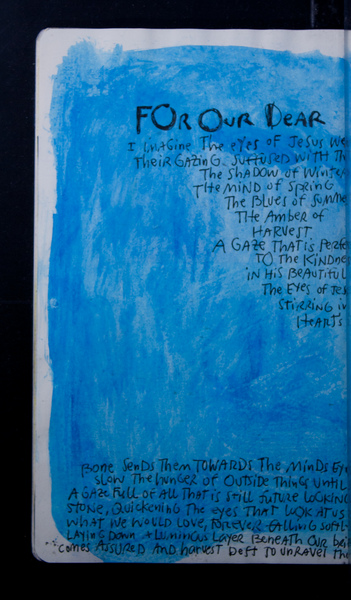 FOR OUR DEAR
I IMAGINE THE EYES OF JESUS WE
THEIR GAZING. SUFFUSED WITH TH
THE SHADOW OF WINTER
THE MIND OF SPRING
THE BLUES OF SUMME
THE AMBER OF
HARVEST
A GAZE THAT IS PERFE
TO THE KINDNE
IN HIS BEAUTIFUL
THE EYES OF JES
STIRRING IN
HEARTS
BONE SENDS THEM TOWARDS THE MINDS EYE
SLOW THE HUNGER OF OUTSIDE THINGS UNTIL
A GAZE FULL OF ALL THAT IS STILL FUTURE LOOKING
STONE, QUICKENING THE EYES THAT LOOK AT US
WHAT WE WOULD LOVE, FOREVER FALLING SOFTL
LAYING DOWN A LUMINOUS LAYER BENEATH OUR BEI
COMES ASSURED AND HARVEST DEFT TO UNRAVEL THE